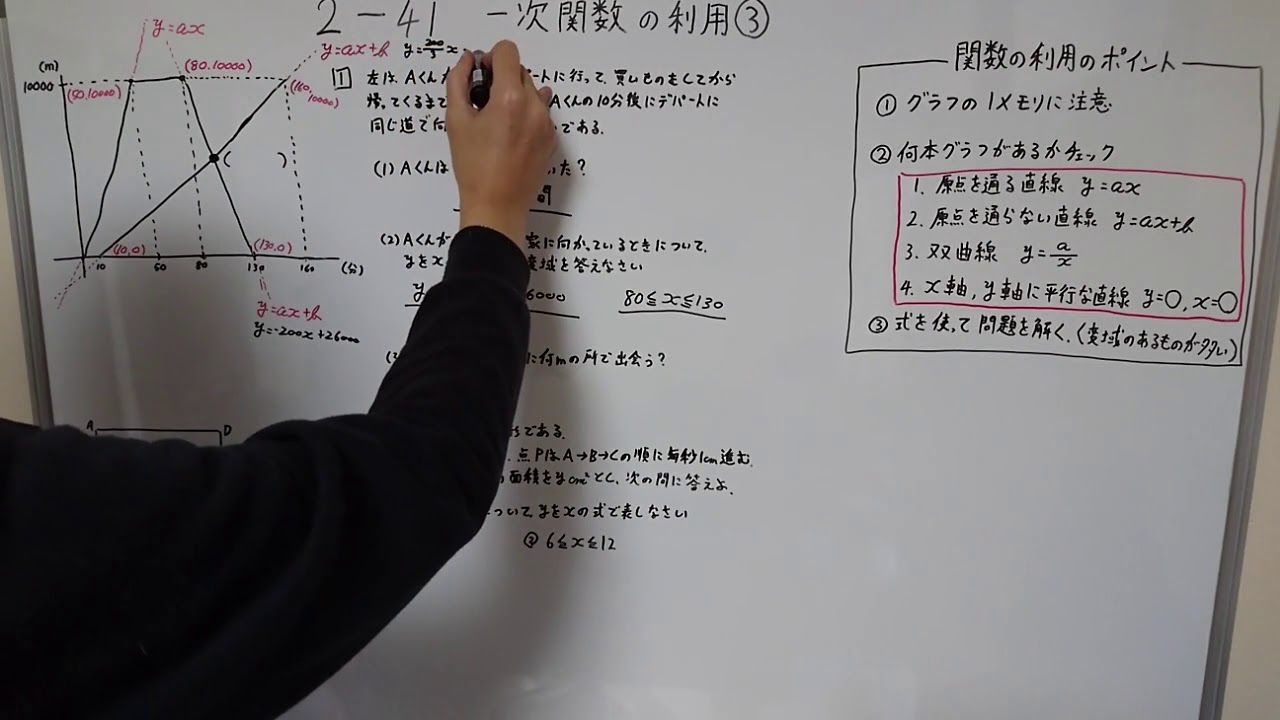 2-41 一次関数の利用③
y=ax
y=ax+b
y=200/3 x
(m)
10000
(50,10000)
(80,10000)
(160,10000)
( )
(10,0)
(130,0)
10 50 80 130 160 (分)
y=ax+b
y=-200x+26000
1 左は、Aくんが ートに行って、買いものをしてから
帰ってくるまで Aくんの10分後にデパートに
同じ道で向 である.
(1) Aくんは た?
(2) Aくんが 家に向かっているときについて.
yをx 変域を答えなさい
y 6000 80≦x≦130
(3 に何mの所で出会う?
A D
である.
点PはA→B→Cの順に毎秒1cm進む.
面積をycm²とし、次の問に答えよ.
について、yをxの式で表しなさい
② 6≦x≦12
関数の利用のポイント
① グラフの1メモリに注意
② 何本グラフがあるかチェック
1. 原点を通る直線 y=ax
2. 原点を通らない直線 y=ax+b
3. 双曲線 y=a/x
4. x軸,y軸に平行な直線 y=○,x=○
③ 式を使って問題を解く.(変域のあるものが多い)